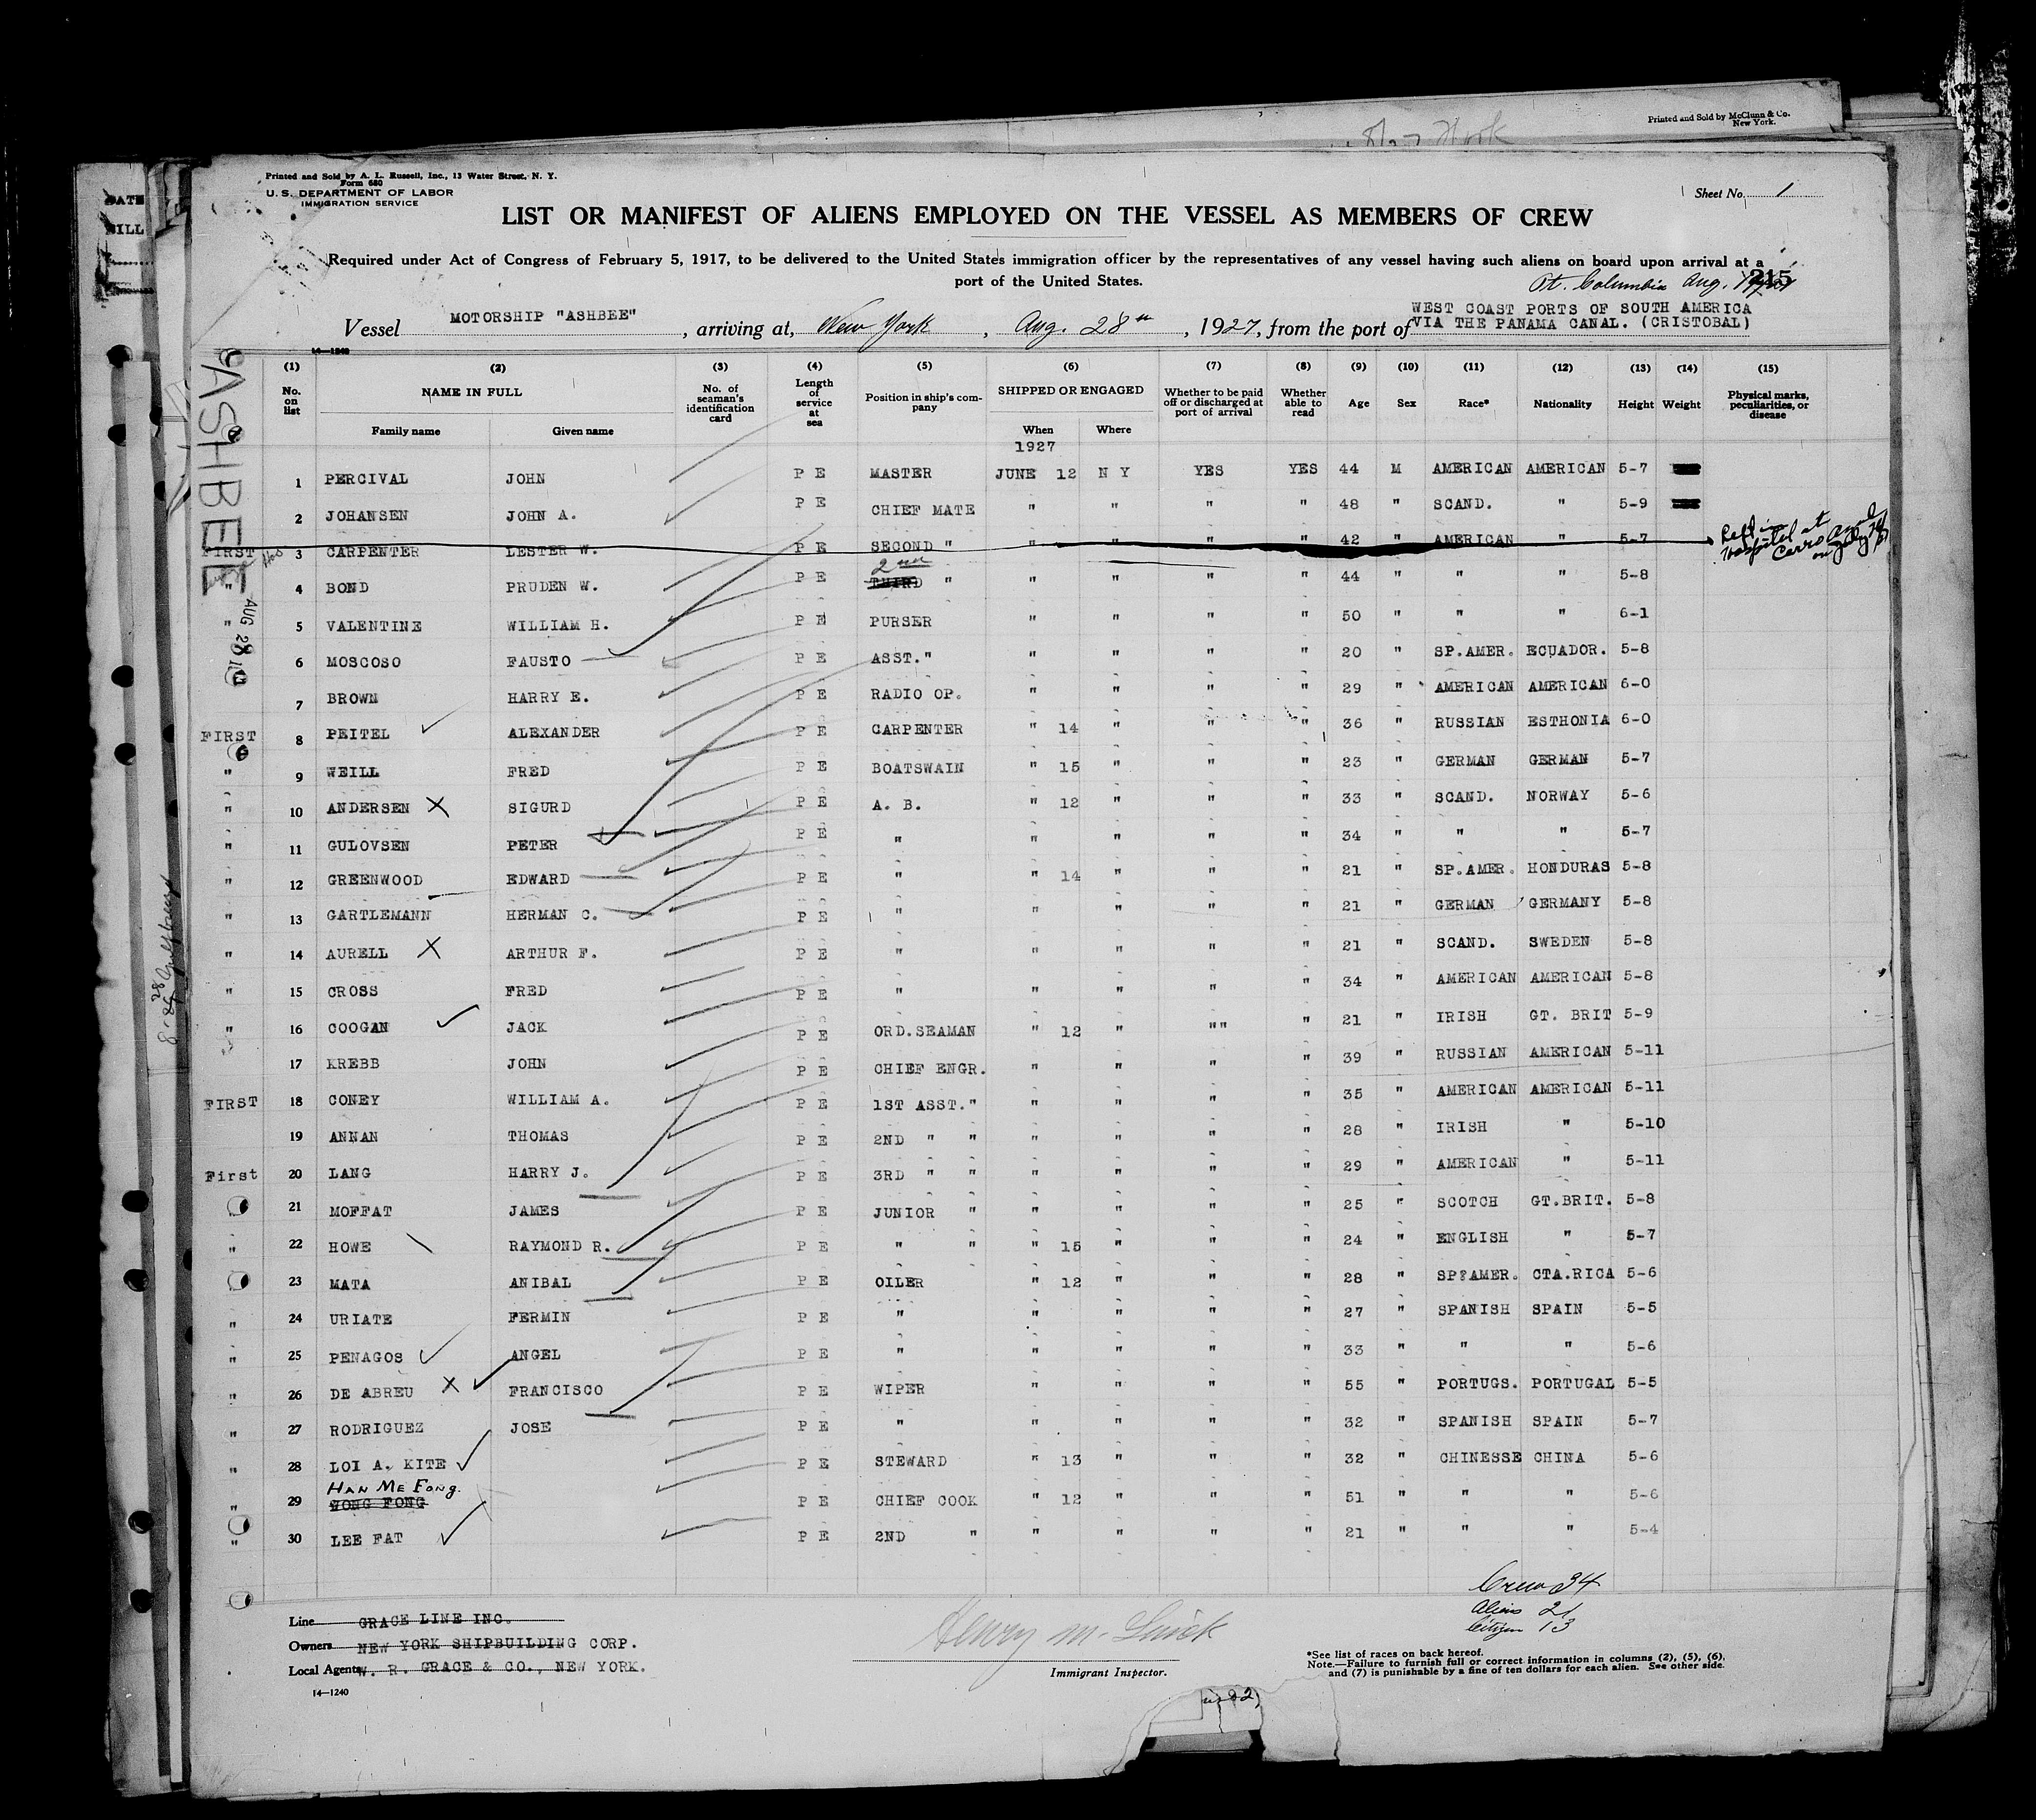 Printed and Sold by McClunn & Co.
New York.
DATE
BILL
Printed and Sold by A. L. Russell, Inc., 13 Water Street, N. Y.
Form 680
U. S. DEPARTMENT OF LABOR
IMMIGRATION SERVICE
Sheet No. 1
LIST OR MANIFEST OF ALIENS EMPLOYED ON THE VESSEL AS MEMBERS OF CREW
Required under Act of Congress of February 5, 1917, to be delivered to the United States immigration officer by the representatives of any vessel having such aliens on board upon arrival at a
port of the United States.
Pt. Columbia Aug.
215
Vessel MOTORSHIP "ASHBEE", arriving at, New York, Aug. 28th, 1927, from the port of WEST COAST PORTS OF SOUTH AMERICA
VIA THE PANAMA CANAL. (CRISTOBAL)
14—1240
ASHBEE
AUG 28
(1) (2) (3) (4) (5) (6) (7) (8) (9) (10) (11) (12) (13) (14) (15)
No. on list NAME IN FULL No. of seaman's identification card Length of service at sea Position in ship's company SHIPPED OR ENGAGED Whether to be paid off or discharged at port of arrival Whether able to read Age Sex Race* Nationality Height Weight Physical marks, peculiarities, or disease
Family name Given name When Where
1927
1 PERCIVAL JOHN P E MASTER JUNE 12 N Y YES YES 44 M AMERICAN AMERICAN 5-7
2 JOHANSEN JOHN A. P E CHIEF MATE " " " " 48 " SCAND. " 5-9
FIRST 3 CARPENTER LESTER W. P E SECOND " " " " " 42 " AMERICAN " 5-7 Left in Hospital at
" 4 BOND PRUDEN W. P E THIRD 2nd " " " " " 44 " " " 5-8
" 5 VALENTINE WILLIAM H. P E PURSER " " " " 50 " " " 6-1
6 MOSCOSO FAUSTO P E ASST." " " " " 20 " SP.AMER. ECUADOR. 5-8
7 BROWN HARRY E. P E RADIO OP. " " " " 29 " AMERICAN AMERICAN 6-0
FIRST 8 PEITEL ALEXANDER P E CARPENTER " 14 " " " 36 " RUSSIAN ESTHONIA 6-0
" 9 WEILL FRED P E BOATSWAIN " 15 " " " 23 " GERMAN GERMAN 5-7
" 10 ANDERSEN X SIGURD P E A. B. " 12 " " " 33 " SCAND. NORWAY 5-6
" 11 GULOVSEN PETER P E " " " " " 34 " " " 5-7
" 12 GREENWOOD EDWARD P E " " 14 " " " 21 " SP.AMER. HONDURAS 5-8
" 13 GARTLEMANN HERMAN C. P E " " " " " 21 " GERMAN GERMANY 5-8
" 14 AURELL X ARTHUR F. P E " " " " " 21 " SCAND. SWEDEN 5-8
" 15 CROSS FRED P E " " " " " 34 " AMERICAN AMERICAN 5-8
" 16 COOGAN JACK P E ORD.SEAMAN " 12 " "" " 21 " IRISH GT. BRIT 5-9
17 KREBB JOHN P E CHIEF ENGR. " " " " 39 " RUSSIAN AMERICAN 5-11
FIRST 18 CONEY WILLIAM A. P E 1ST ASST." " " " " 35 " AMERICAN AMERICAN 5-11
19 ANNAN THOMAS P E 2ND " " " " " " 28 " IRISH " 5-10
First 20 LANG HARRY J. P E 3RD " " " " " " 29 " AMERICAN " 5-11
21 MOFFAT JAMES P E JUNIOR " " " " " 25 " SCOTCH GT.BRIT. 5-8
" 22 HOWE RAYMOND R. P E " " " 15 " " " 24 " ENGLISH " 5-7
23 MATA ANIBAL P E OILER " 12 " " " 28 " SP?AMER. CTA.RICA 5-6
" 24 URIATE FERMIN P E " " " " " 27 " SPANISH SPAIN 5-5
" 25 PENAGOS ANGEL P E " " " " " 33 " " " 5-6
" 26 DE ABREU X FRANCISCO P E WIPER " " " " 55 " PORTUGS. PORTUGAL 5-5
" 27 RODRIGUEZ JOSE P E " " " " " 32 " SPANISH SPAIN 5-7
" 28 LOI A. KITE P E STEWARD " 13 " " " 32 " CHINESSE CHINA 5-6
HAN ME FONG.
" 29 HONG FONG P E CHIEF COOK " 12 " " " 51 " " " 5-6
" 30 LEE FAT P E 2ND " " " " " 21 " " " 5-4
Crew 34
Aliens 21
Citizen 13
Line GRACE LINE INC.
Owners NEW YORK SHIPBUILDING CORP.
Local Agents W. R. GRACE & CO., NEW YORK.
14—1240
Immigrant Inspector.
*See list of races on back hereof.
Note.—Failure to furnish full or correct information in columns (2), (5), (6),
and (7) is punishable by a fine of ten dollars for each alien. See other side.